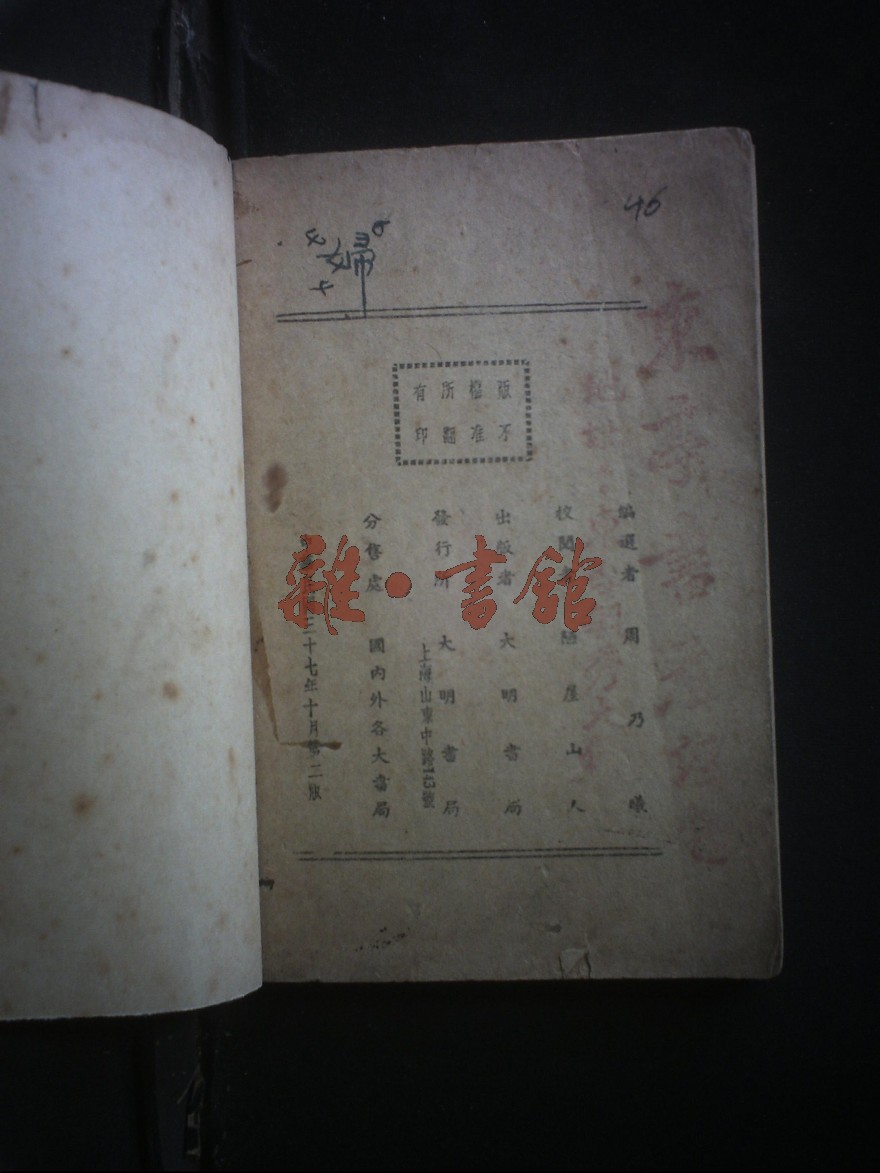 46
婦
版權所有
不准翻印
編選者 周乃曦
校閱者 陋屋山人
出版者 大明書局
發行所 大明書局
上海山東中路
分售處 國內外各大書局
三十七年十月第二版
雜·書館